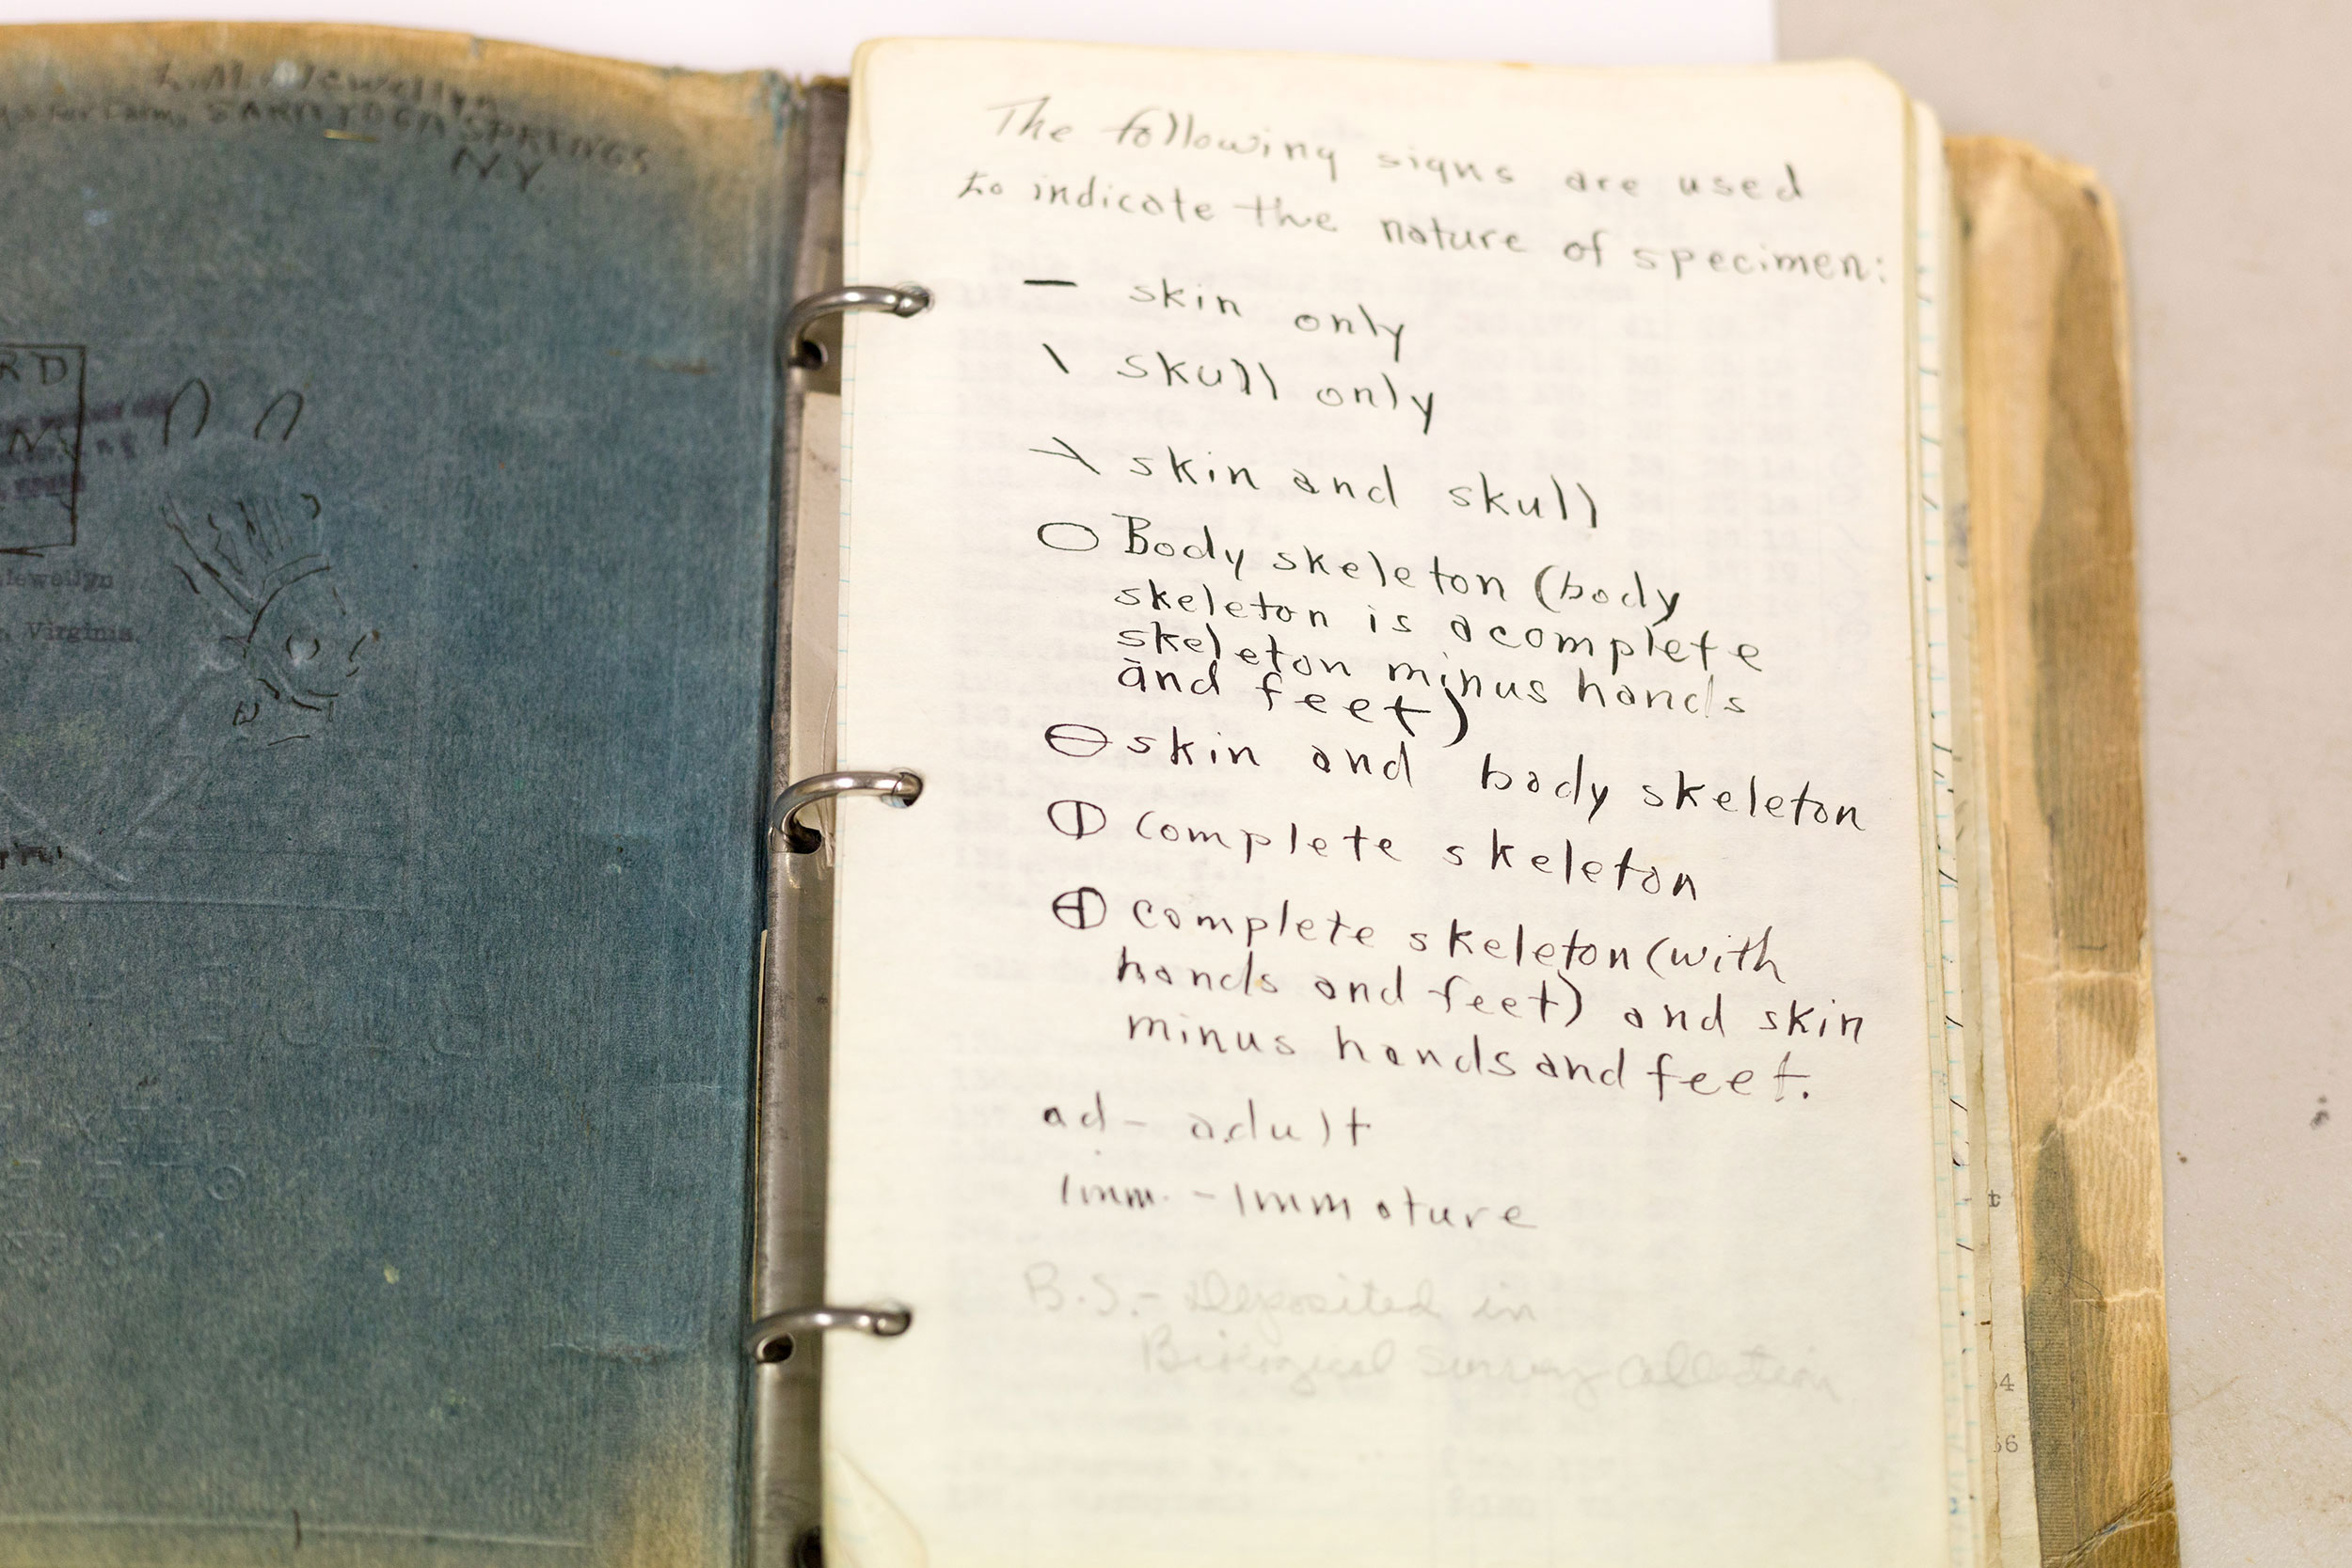 L. M. Llewellyn
Fur Farm, SARATOGA SPRINGS
N.Y.
RD
N.Y.
Llewellyn
Virginia.
The following signs are used
to indicate the nature of specimen:
— skin only
\ skull only
skin and skull
○ Body skeleton (body
skeleton is a complete
skeleton minus hands
and feet)
⊖ skin and body skeleton
⦶ complete skeleton
⊕ complete skeleton (with
hands and feet) and skin
minus hands and feet.
ad - adult
Imm. - Immature
B.S. - Deposited in
Biological Survey Collection
t
4
66